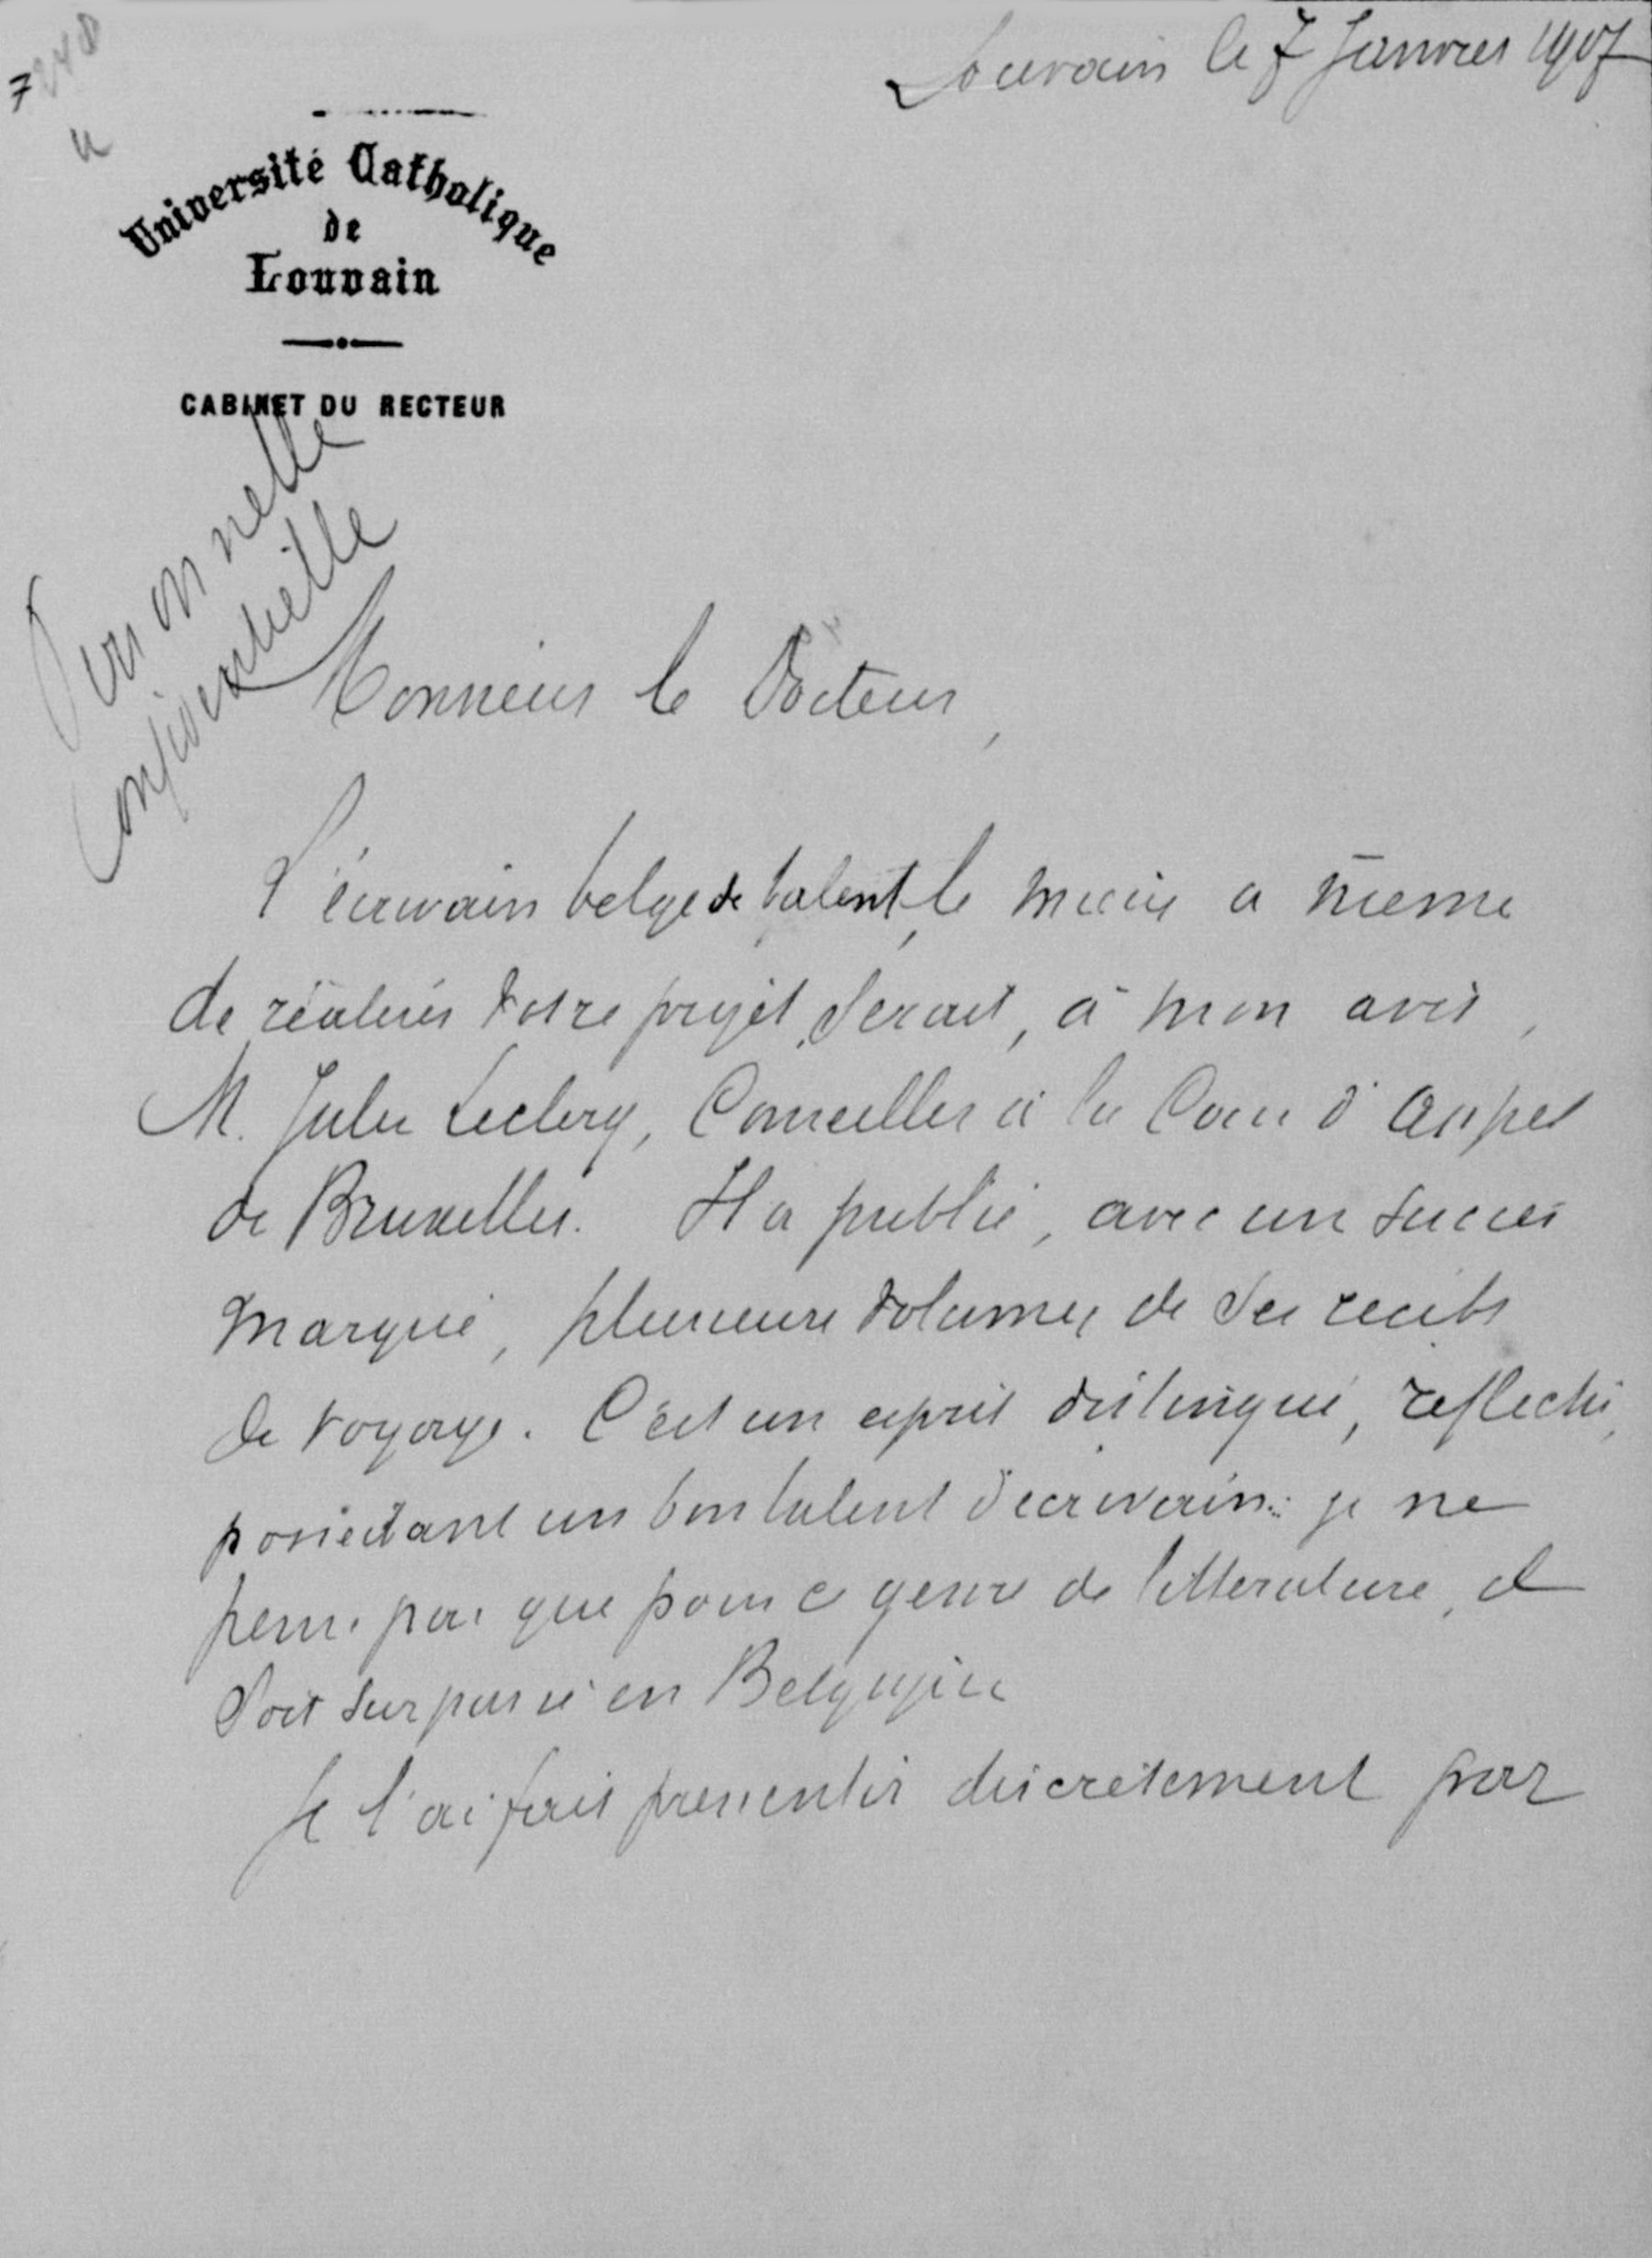 Louvain le 7 Janvier 1907
7248
u
Université Catholique
de
Louvain
CABINET DU RECTEUR
Personnelle
Confidentielle
Monsieur le Docteur,
L'écrivain belge de talent, le mieux a même
de réaliser votre projet, serait, à mon avis,
M. Jules Leclercq, Conseiller à la Cour d'Appel
de Bruxelles. Il a publié, avec un succès
marqué, plusieurs volumes de ses recits
de voyage. C'est un esprit distingué, reflechi,
possédant un bon talent d'écrivain: je ne
pense pas que pour ce genre de litterature, il
soit surpassé en Belgique
Je l'ai fait pressentir discrètement par